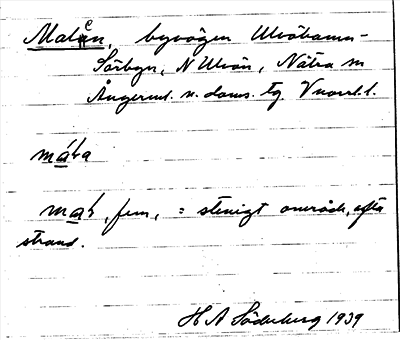 Malen, byvägen Ulvöhamn-
Sörbyn, N Ulvön, Nätra sn
Ångerml. n. doms. tg. V norrl. l.
mála
mal, fem, = stenigt område, ofta
strand.
H A Söderberg 1939